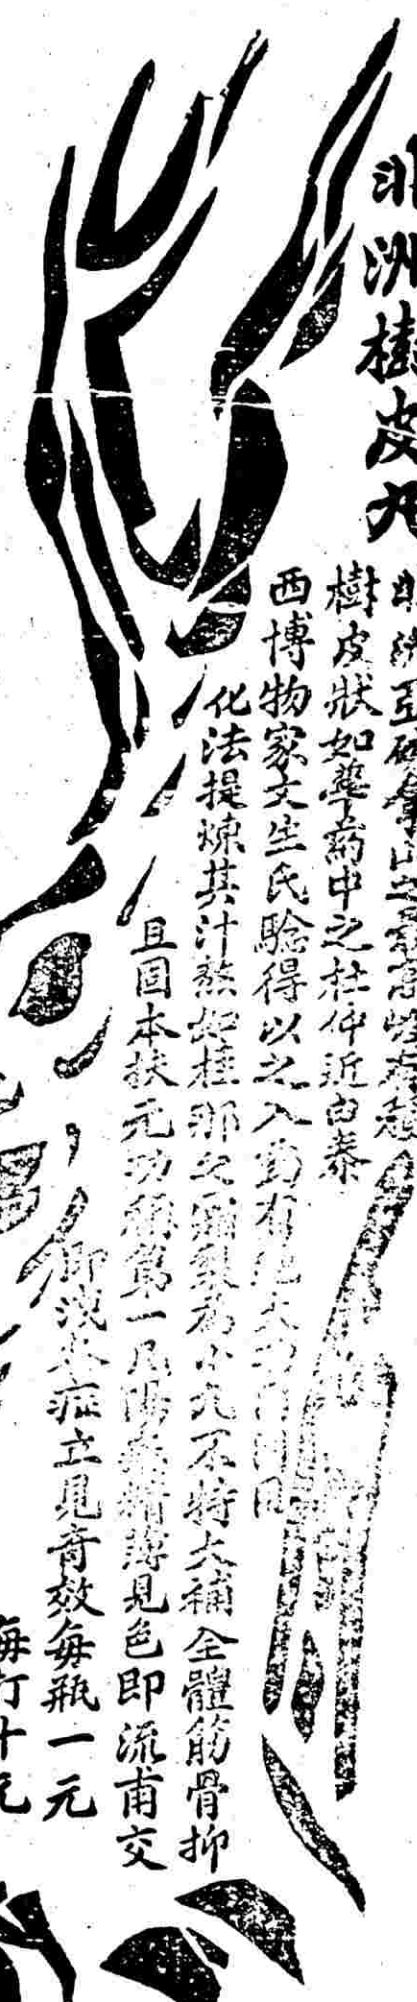 非洲樹皮丸
非洲亞山之
樹皮狀如藥中之杜仲近白泰
西博物家文生氏驗得以之入有
化法提煉其汁熬如桂那之霜製為小丸不特大補全體筋骨抑
且固本扶元功稱第一凡陽精薄見色即流甫交
即洩等症立見奇效每瓶一元
每打十元